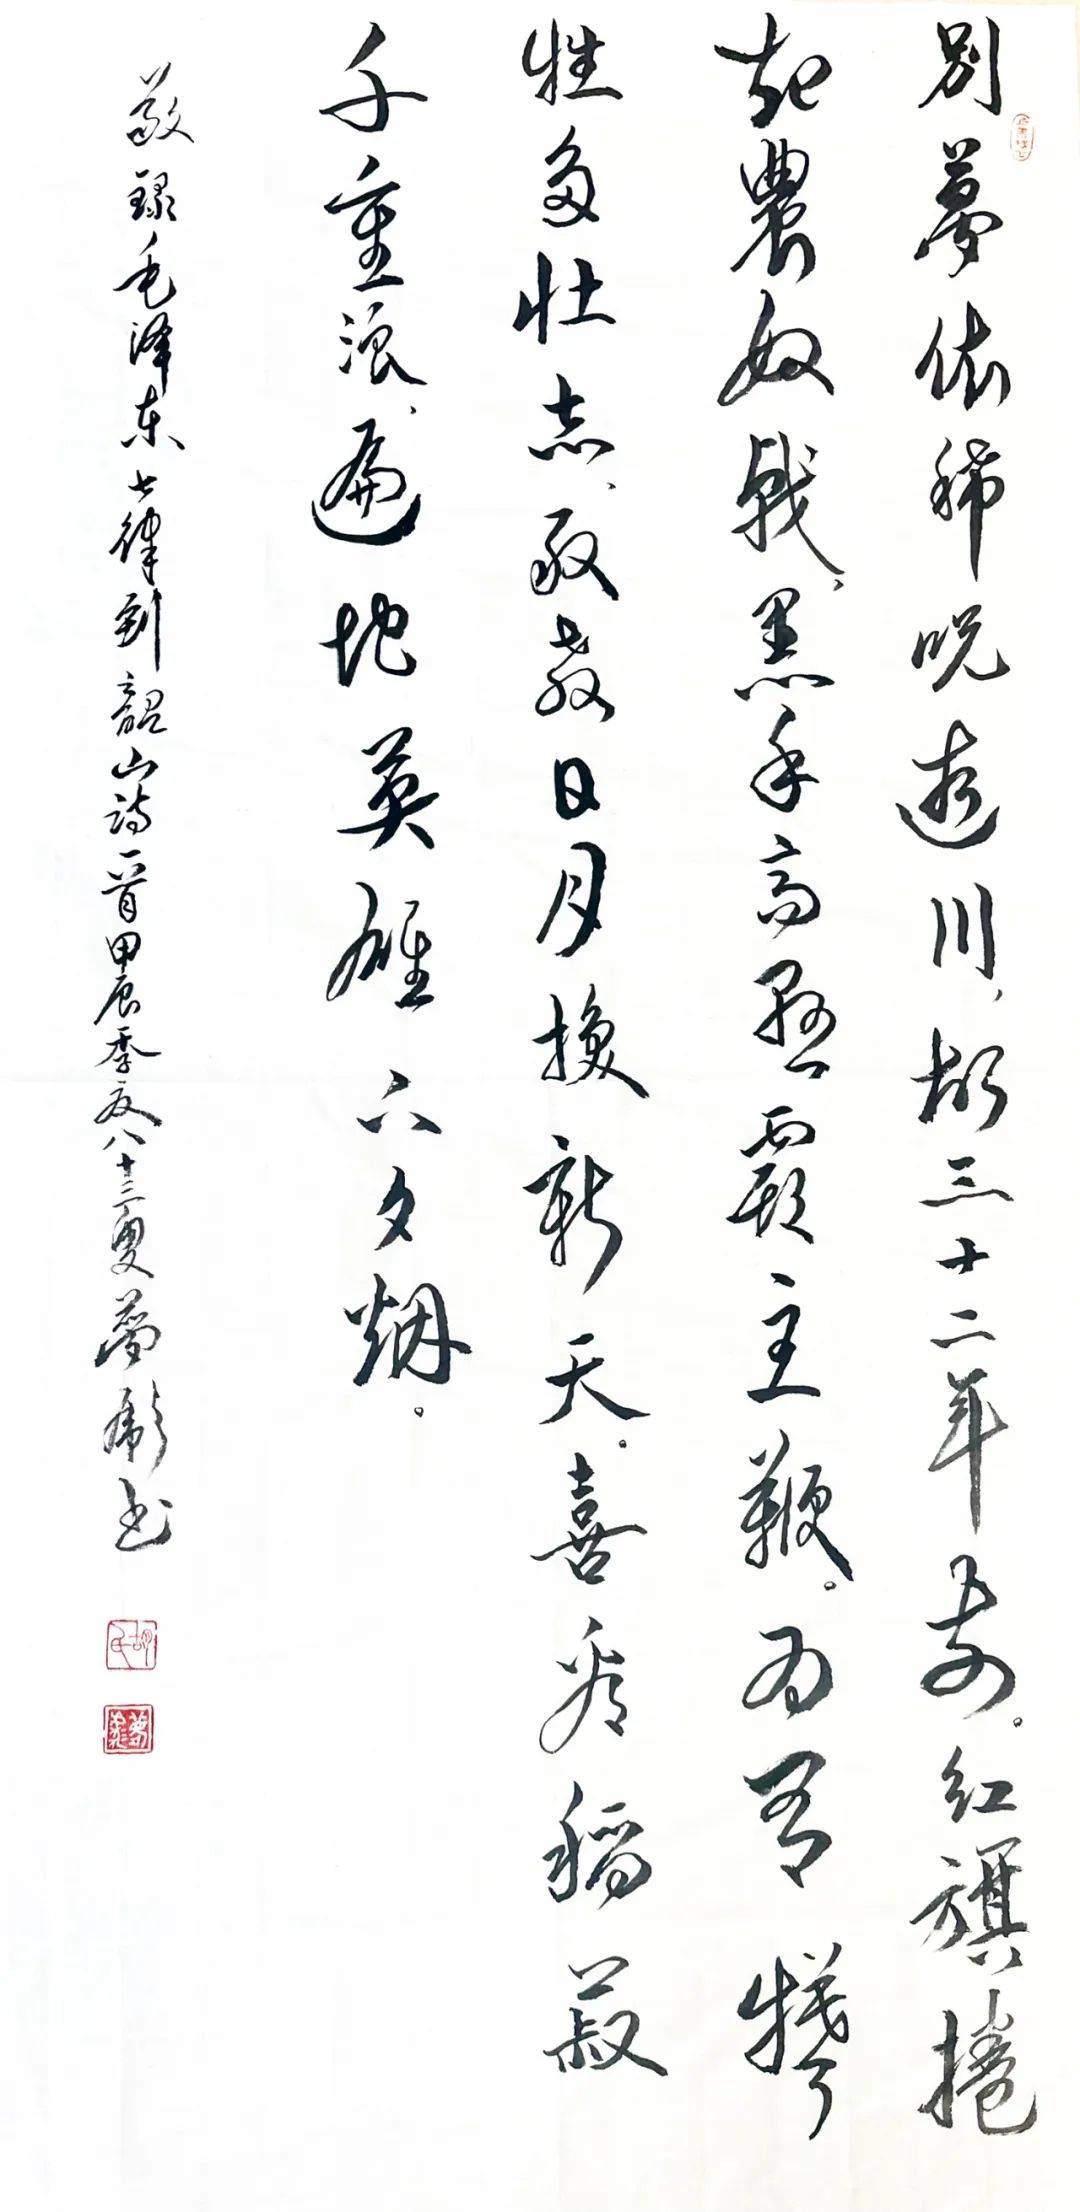 別夢依稀呪逝川、故三十二年前。红旗捲
起農奴戟、黑手高懸霸主鞭。为有犧
牲多壮志、敢教日月换新天。喜看稻菽
千重浪、遍地英雄下夕烟。
敬録毛泽东七律到韶山诗一首甲辰季夏八十三叟夢彪书
胡氏
夢彪